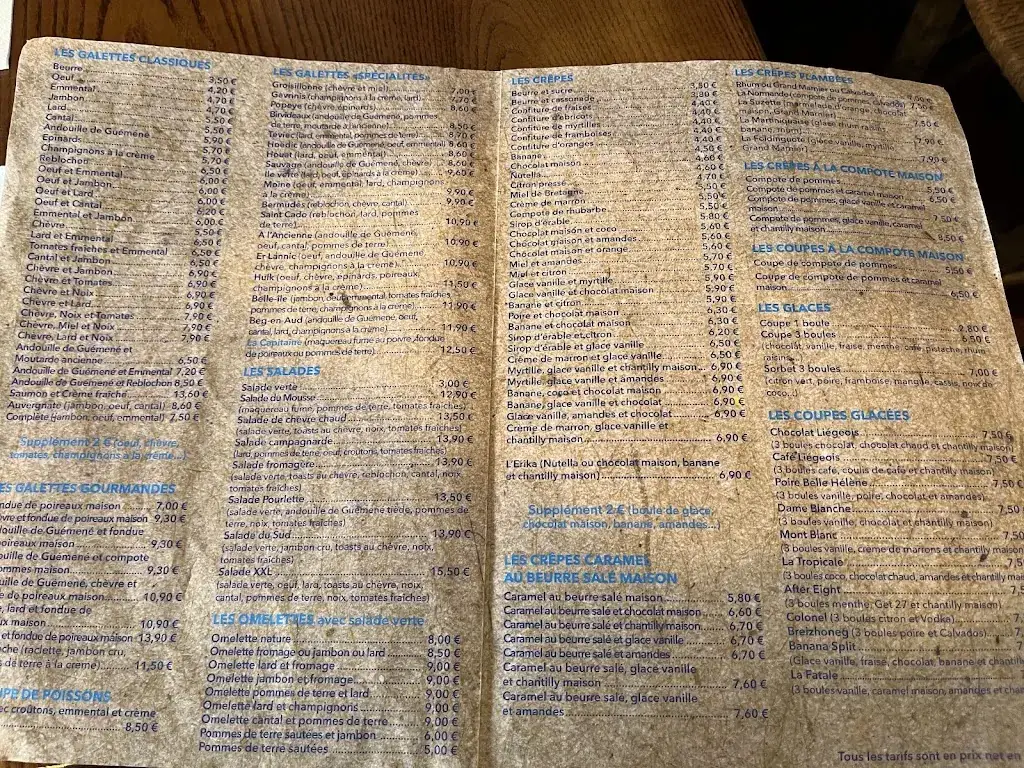 LES GALETTES CLASSIQUES
Beurre 3,50 €
Oeuf 4,20 €
Emmental 4,70 €
Jambon 4,70 €
Lard 5,50 €
Cantal 5,50 €
Andouille de Guémené 5,90 €
Epinards 5,70 €
Champignons à la crème 5,70 €
Reblochon 6,50 €
Oeuf et Emmental 6,00 €
Oeuf et Jambon 6,00 €
Oeuf et Lard 6,00 €
Oeuf et Cantal 6,20 €
Emmental et Jambon 6,00 €
Chèvre 5,50 €
Lard et Emmental 6,50 €
Tomates fraîches et Emmental 6,50 €
Cantal et Jambon 6,90 €
Chèvre et Jambon 6,90 €
Chèvre et Tomates 6,90 €
Chèvre et Noix 6,90 €
Chèvre et Lard 6,90 €
Chèvre, Noix et Tomates 7,90 €
Chèvre, Miel et Noix 7,90 €
Chèvre, Lard et Noix 7,90 €
Andouille de Guémené et
Moutarde ancienne 6,50 €
Andouille de Guémené et Emmental 7,20 €
Andouille de Guémené et Reblochon 8,50 €
Saumon et Crème fraîche 13,60 €
Auvergnate (jambon, oeuf, cantal) 8,60 €
Complète (jambon, oeuf, emmental) 7,50 €
Supplément 2 € (oeuf, chèvre,
tomates, champignons à la crème...)
ES GALETTES GOURMANDES
ndue de poireaux maison 7,00 €
vre et fondue de poireaux maison 9,30 €
douille de Guémené et fondue
poireaux maison 9,30 €
ouille de Guémené et compote
ommes maison 9,30 €
uille de Guémené, chèvre et
e de poireaux maison 10,90 €
, lard et fondue de
ux maison 10,90 €
et fondue de poireaux maison 13,90 €
che (raclette, jambon cru,
s de terre à la crème) 11,50 €
PE DE POISSONS
ec croûtons, emmental et crème
8,50 €
LES GALETTES «SPÉCIALITÉS»
Groisillonne (chèvre et miel) 7,00 €
Gavrinis (champignons à la crème, lard) 7,70 €
Popeye (chèvre, épinards) 8,60 €
Birvideaux (andouille de Guémené, pommes
de terre, moutarde à l'ancienne) 8,50 €
Téviec (lard, emmental, pommes de terre) 8,70 €
Hoëdic (andouille de Guémené, oeuf, emmental) 8,60 €
Houat (lard, oeuf, emmental) 8,60 €
Sauvage (andouille de Guémené, chèvre) 8,60 €
Ile verte (lard, oeuf, épinards à la crème) 9,60 €
Moine (oeuf, emmental, lard, champignons
à la crème) 9,90 €
Bermudes (reblochon, chèvre, cantal) 9,90 €
Saint Cado (reblochon, lard, pommes
de terre) 10,90 €
A l'Ancienne (andouille de Guémené,
oeuf, cantal, pommes de terre) 10,90 €
Er Lannic (oeuf, andouille de Guémené
chèvre, champignons à la crème) 10,90 €
Hulk (oeuf, chèvre, épinards, poireaux,
champignons à la crème) 11,50 €
Belle-Ile (jambon, oeuf, emmental, tomates fraîches,
pommes de terre, champignons à la crème) 11,90 €
Beg-en-Aud (andouille de Guémené, oeuf,
cantal, lard, champignons à la crème) 11,90 €
La Capitaine (maquereau fumé au poivre, fondue
de poireaux ou pommes de terre) 12,50 €
LES SALADES
Salade verte 3,00 €
Salade du Mousse 12,90 €
(maquereau fumé, pommes de terre, tomates fraîches)
Salade de chèvre chaud 13,50 €
(salade verte, toasts au chèvre, noix, tomates fraîches)
Salade campagnarde 13,90 €
(lard, pommes de terre, oeuf, croûtons, tomates fraîches)
Salade fromagère 13,90 €
(salade verte, toasts au chèvre, reblochon, cantal, noix,
tomates fraîches)
Salade Pourlette 13,50 €
(salade verte, andouille de Guémené tiède, pommes de
terre, noix, tomates fraîches)
Salade du Sud 13,90 €
(salade verte, jambon cru, toasts au chèvre, noix,
tomates fraîches)
Salade XXL 15,50 €
(salade verte, oeuf, lard, toasts au chèvre, noix,
cantal, pommes de terre, noix, tomates fraîches)
LES OMELETTES avec salade verte
Omelette nature 8,00 €
Omelette fromage ou jambon ou lard 8,50 €
Omelette lard et fromage 9,00 €
Omelette jambon et fromage 9,00 €
Omelette pommes de terre et lard 9,00 €
Omelette lard et champignons 9,00 €
Omelette cantal et pommes de terre 9,00 €
Pommes de terre sautées et jambon 6,00 €
Pommes de terre sautées 5,00 €
LES CRÊPES
Beurre et sucre 3,80 €
Beurre et cassonade 3,80 €
Confiture de fraises 4,40 €
Confiture d'abricots 4,40 €
Confiture de myrtilles 4,40 €
Confiture de framboises 4,40 €
Confiture d'oranges 4,40 €
Banane 4,50 €
Chocolat maison 4,60 €
Nutella 4,70 €
Citron pressé 5,50 €
Miel de Bretagne 5,50 €
Crème de marron 5,50 €
Compote de rhubarbe 5,50 €
Sirop d'érable 5,80 €
Chocolat maison et coco 5,60 €
Chocolat maison et amandes 5,60 €
Chocolat maison et orange 5,60 €
Miel et amandes 5,70 €
Miel et citron 5,70 €
Glace vanille et myrtille 5,90 €
Glace vanille et chocolat maison 5,90 €
Banane et citron 5,90 €
Poire et chocolat maison 6,30 €
Banane et chocolat maison 6,30 €
Sirop d'érable et citron 6,20 €
Sirop d'érable et glace vanille 6,50 €
Crème de marron et glace vanille 6,50 €
Myrtille, glace vanille et chantilly maison 6,90 €
Myrtille, glace vanille et amandes 6,90 €
Banane, coco et chocolat maison 6,90 €
Banane, glace vanille et chocolat 6,90 €
Glace vanille, amandes et chocolat 6,90 €
Crème de marron, glace vanille et
chantilly maison 6,90 €
L'Erika (Nutella ou chocolat maison, banane
et chantilly maison) 6,90 €
Supplément 2 € (boule de glace,
chocolat maison, banane, amandes...)
LES CRÊPES CARAMEL
AU BEURRE SALÉ MAISON
Caramel au beurre salé maison 5,80 €
Caramel au beurre salé et chocolat maison 6,60 €
Caramel au beurre salé et chantilly maison 6,70 €
Caramel au beurre salé et glace vanille 6,70 €
Caramel au beurre salé et amandes 6,70 €
Caramel au beurre salé, glace vanille
et chantilly maison 7,60 €
Caramel au beurre salé, glace vanille
et amandes 7,60 €
LES CRÊPES FLAMBÉES
Rhum ou Grand Marnier ou Calvados 7,00 €
La Normande (compote de pommes, calvados) 7,50 €
La Suzette (marmelade, chocolat
amère, Grand Marnier) 7,50 €
La Martiniquaise (glace rhum raisin,
banane, rhum) 7,90 €
La Foldingotte (glace vanille, myrtille
Grand Marnier) 7,90 €
LES CRÊPES À LA COMPOTE MAISON
Compote de pommes 5,50 €
Compote de pommes et caramel maison 6,50 €
Compote de pommes, glace vanille et caramel
maison 7,50 €
Compote de pommes, glace vanille, caramel
et chantilly maison 8,50 €
LES COUPES À LA COMPOTE MAISON
Coupe de compote de pommes 5,50 €
Coupe de compote de pommes et caramel
maison 6,50 €
LES GLACES
Coupe 1 boule 2,80 €
Coupe 3 boules 6,50 €
(chocolat, vanille, fraise, menthe, café, pistache, rhum
raisins...)
Sorbet 3 boules 7,00 €
(citron vert, poire, framboise, mangue, cassis, noix de
coco...)
LES COUPES GLACÉES
Chocolat Liégeois 7,50 €
(3 boules chocolat, chocolat chaud et chantilly maison)
Café Liégeois 7,50 €
(3 boules café, coulis de café et chantilly maison)
Poire Belle Hélène 7,50 €
(3 boules vanille, poire, chocolat et amandes)
Dame Blanche 7,50
(3 boules vanille, chocolat et chantilly maison)
Mont Blanc 7,50
(3 boules vanille, crème de marrons et chantilly maison
La Tropicale 7,5
(3 boules coco, chocolat chaud, amandes et chantilly mais
After Eight 7,5
(3 boules menthe, Get 27 et chantilly maison)
Colonel (3 boules citron et Vodka) 7,
Breizhoneg (3 boules poire et Calvados) 7,
Banana Split 7
(Glace vanille, fraise, chocolat, banane et chantilly
La Fatale
(3 boules vanille, caramel maison, amandes et chan
Tous les tarifs sont en prix net en